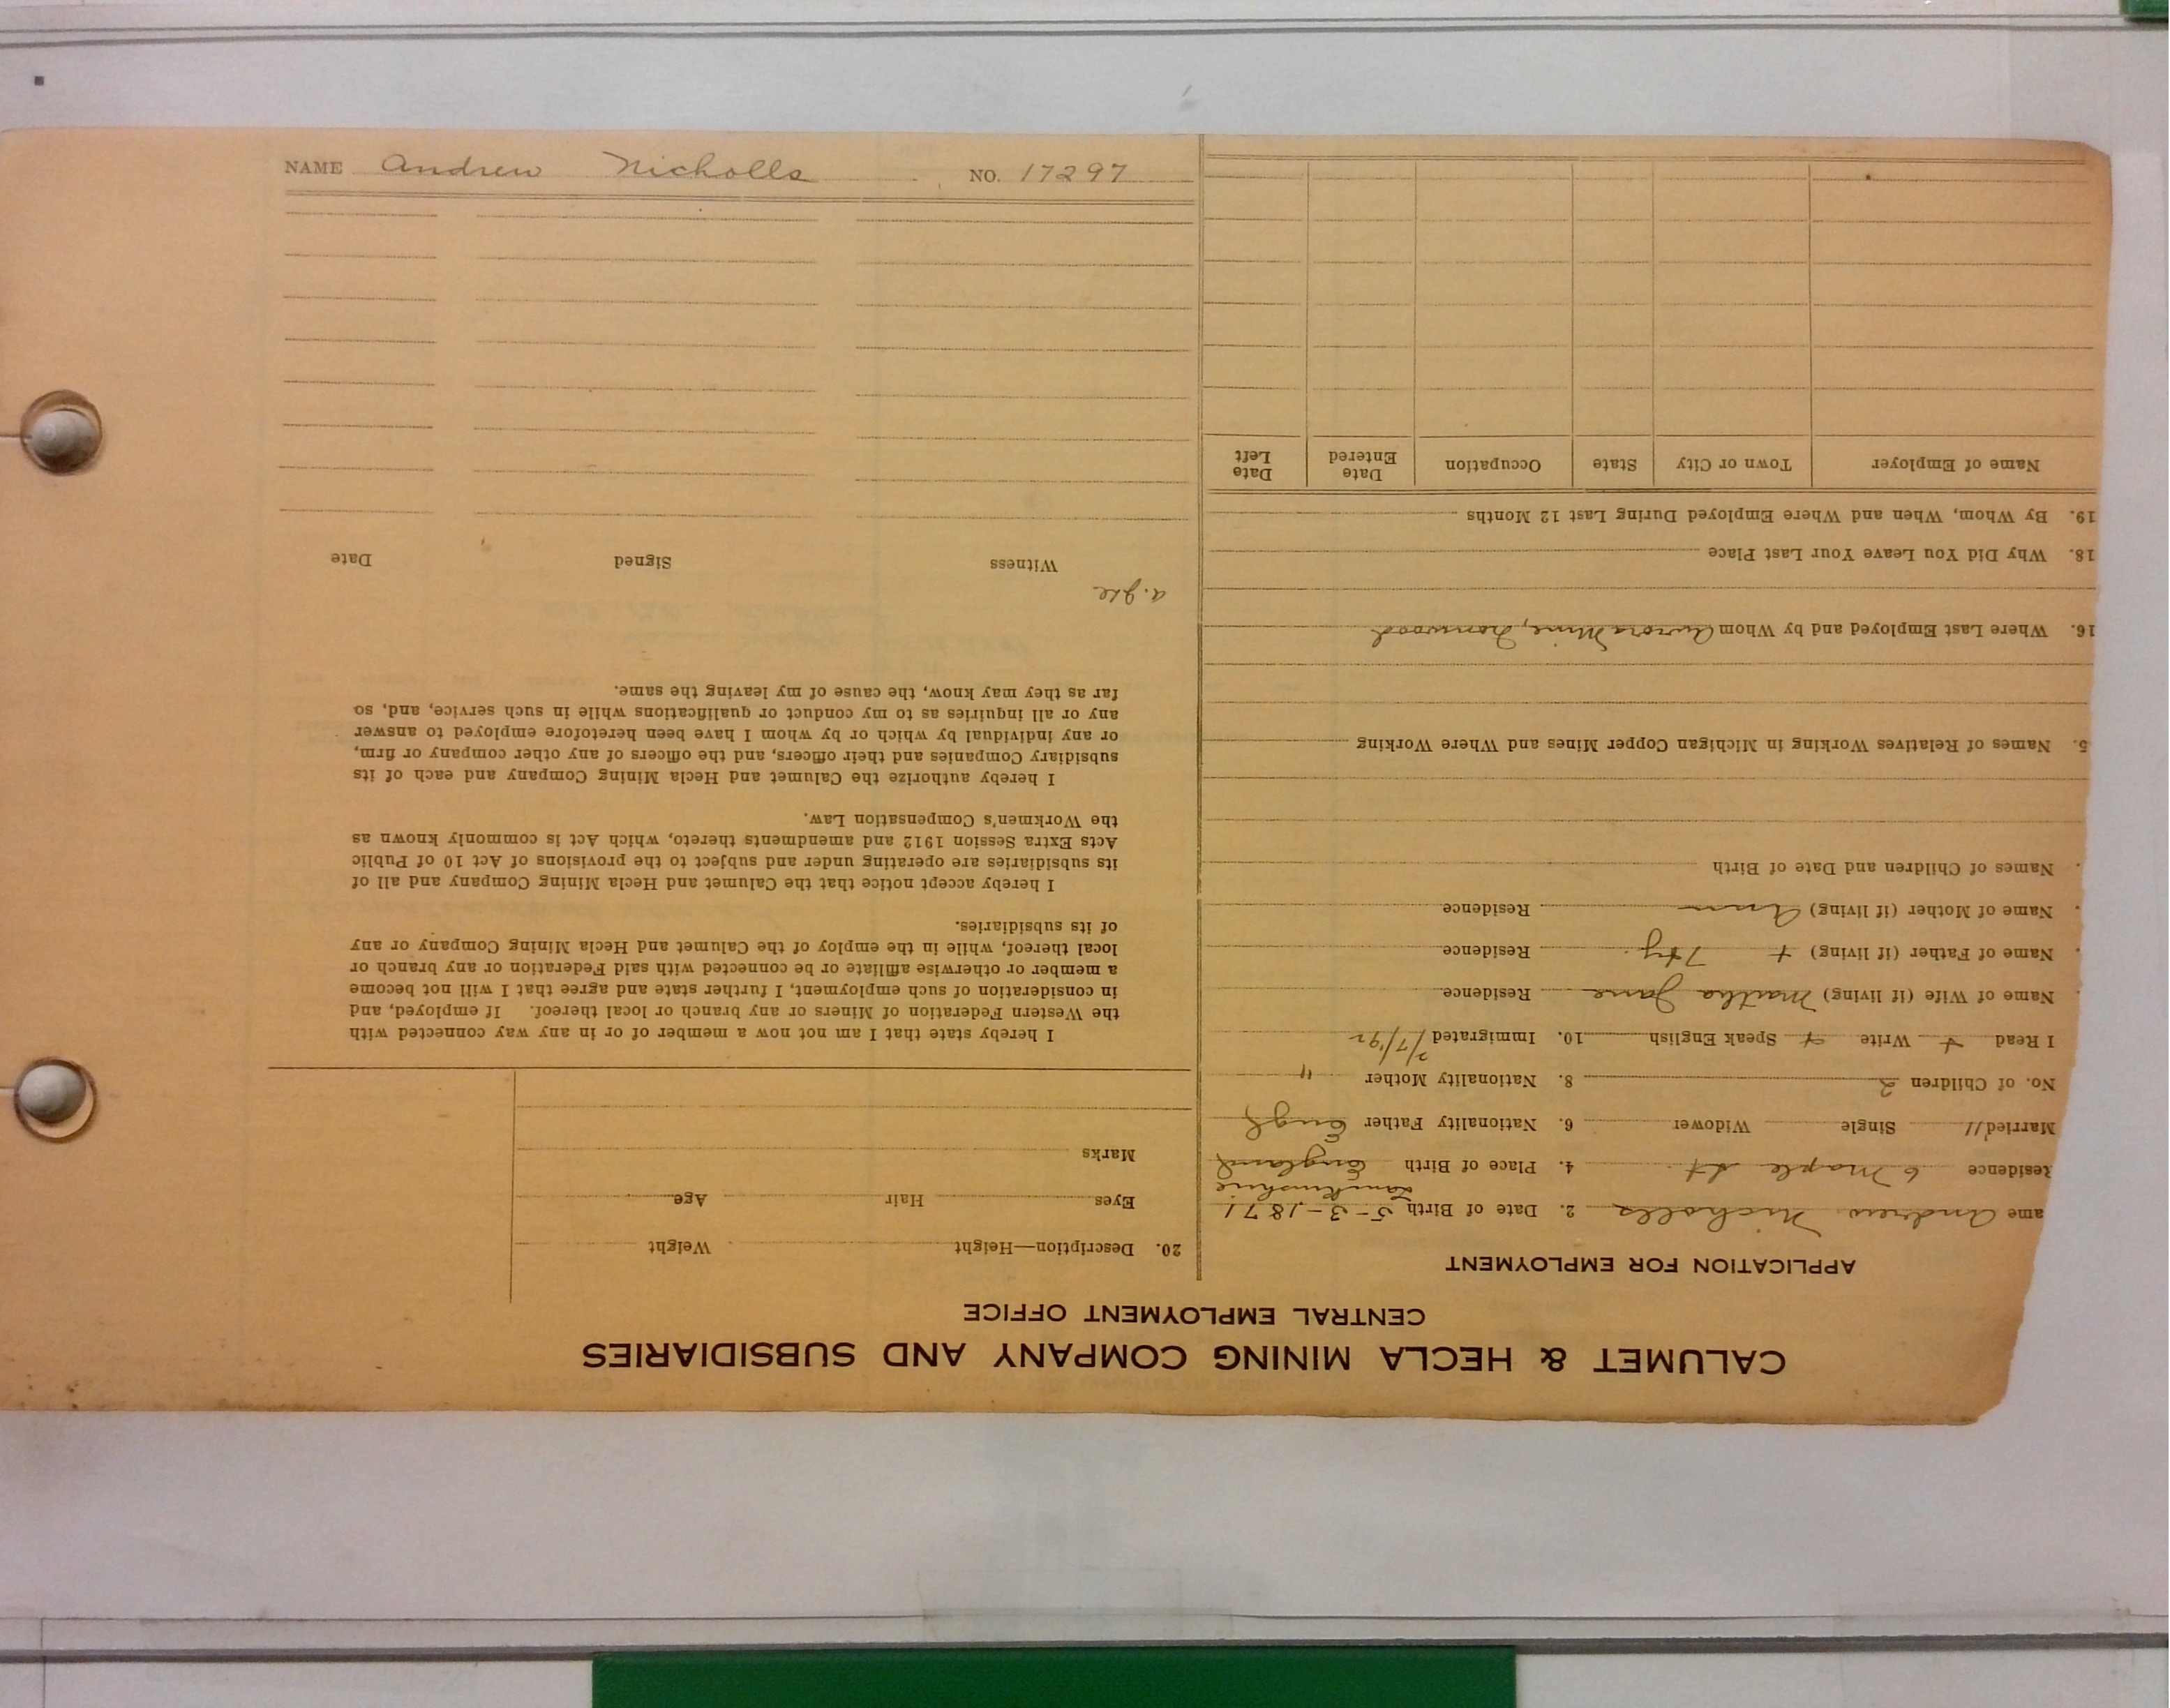 CALUMET & HECLA MINING COMPANY AND SUBSIDIARIES
CENTRAL EMPLOYMENT OFFICE
APPLICATION FOR EMPLOYMENT
ame Andrew Nicholls 2. Date of Birth 5-3-1871
Residence 6 Maple St 4. Place of Birth England
Married // Single Widower 6. Nationality Father Engl
No. of Children 2 8. Nationality Mother "
I Read + Write + Speak English 10. Immigrated
Name of Wife (if living) Martha Jane Residence
Name of Father (if living) + Residence
Name of Mother (if living) Residence
Names of Children and Date of Birth
5. Names of Relatives Working in Michigan Copper Mines and Where Working
16. Where Last Employed and by Whom Aurora Mine, Ironwood
18. Why Did You Leave Your Last Place
19. By Whom, When and Where Employed During Last 12 Months
Name of Employer Town or City State Occupation Date Entered Date Left
20. Description—Height Weight
Eyes Hair Age
Marks
I hereby state that I am not now a member of or in any way connected with
the Western Federation of Miners or any branch or local thereof. If employed, and
in consideration of such employment, I further state and agree that I will not become
a member or otherwise affiliate or be connected with said Federation or any branch or
local thereof, while in the employ of the Calumet and Hecla Mining Company or any
of its subsidiaries.
I hereby accept notice that the Calumet and Hecla Mining Company and all of
its subsidiaries are operating under and subject to the provisions of Act 10 of Public
Acts Extra Session 1912 and amendments thereto, which Act is commonly known as
the Workmen's Compensation Law.
I hereby authorize the Calumet and Hecla Mining Company and each of its
subsidiary Companies and their officers, and the officers of any other company or firm,
or any individual by which or by whom I have been heretofore employed to answer
any or all inquiries as to my conduct or qualifications while in such service, and, so
far as they may know, the cause of my leaving the same.
Witness Signed Date
NAME Andrew Nicholls NO. 17297